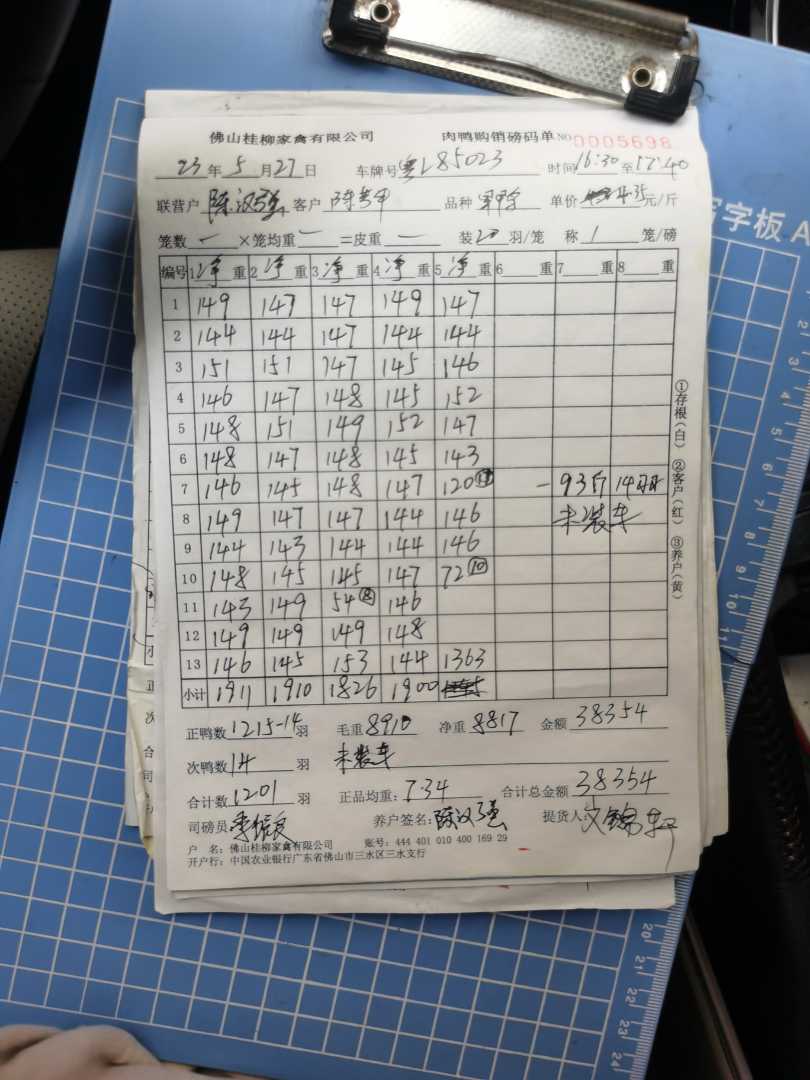 佛山桂柳家禽有限公司 肉鸭购销磅码单 NO 0005698
23 年 5 月 27 日 车牌号 粤L85023 时间 16:30 至 17:40
联营户 陈汉强 客户 品种 单价 4.35 元/斤
笼数 一 ×笼均重 一 =皮重 一 装 20 羽/笼 称 1 笼/磅
编号 1 净 重 2 净 重 3 净 重 4 净 重 5 净 重 6 重 7 重 8 重
1 149 147 147 149 147
2 144 144 147 144 144
3 151 151 147 145 146
4 146 147 148 145 152
5 148 151 149 152 147
6 148 147 148 145 143
7 146 145 148 147 120 ⑰ -93斤 14羽
8 149 147 147 144 146 未装车
9 144 143 144 144 146
10 148 145 145 147 72 ⑩
11 143 149 54 ⑧ 146
12 149 149 149 148
13 146 145 153 144 1363
小计 1911 1910 1826 1900
正鸭数 1215-14 羽 毛重 8910 净重 8817 金额 38354
次鸭数 14 羽 未装车
合计数 1201 羽 正品均重: 7.34 合计总金额 38354
司磅员 李振良 养户签名: 陈汉强 提货人:
户 名: 佛山桂柳家禽有限公司 账号: 444 401 010 400 169 29
开户行: 中国农业银行广东省佛山市三水区三水支行
①存根(白) ②客户(红) ③养户(黄)
写字板 A